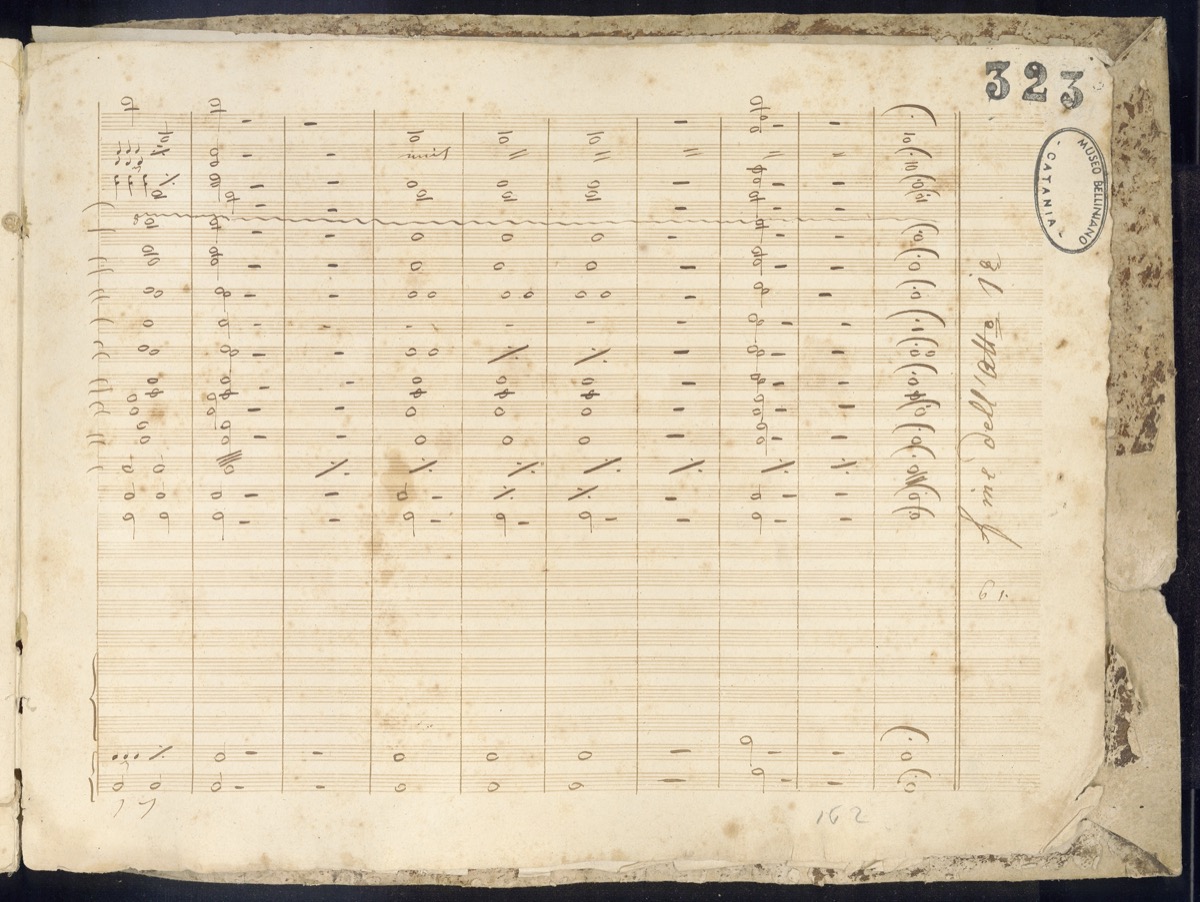 323
MUSEO BELLINIANO
- CATANIA -
unis
Fine dell'Atto
61.
162